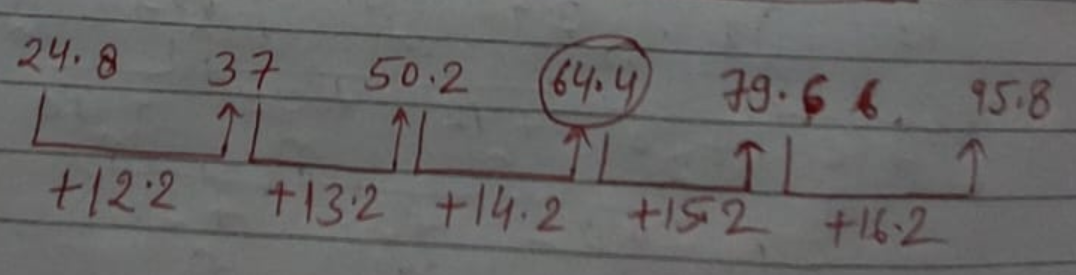 24.8 37 50.2 64.4 79.6 6 95.8
+12.2 +13.2 +14.2 +15.2 +16.2